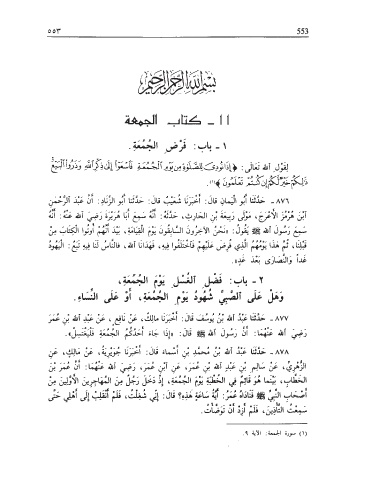 553 ٥٥٣
بسم الله الرحمن الرحيم
١١ - كتاب الجمعة
١ - باب: فَرْضِ الجُمُعَةِ.
لِقَوْلِ اللهِ تَعَالَى: ﴿إِذَا نُودِيَ لِلصَّلَوٰةِ مِن يَوْمِ ٱلْجُمُعَةِ فَٱسْعَوْا إِلَىٰ ذِكْرِ ٱللَّهِ وَذَرُوا ٱلْبَيْعَ
ذَٰلِكُمْ خَيْرٌ لَّكُمْ إِن كُنتُمْ تَعْلَمُونَ﴾(١).
٨٧٦ - حَدَّثَنَا أَبُو الْيَمَانِ قَالَ: أَخْبَرَنَا شُعَيْبٌ قَالَ: حَدَّثَنَا أَبُو الزِّنَادِ: أَنَّ عَبْدَ الرَّحْمَنِ
ابْنَ هُرْمُزَ الأَعْرَجَ، مَوْلَى رَبِيعَةَ بْنِ الحَارِثِ، حَدَّثَهُ: أَنَّهُ سَمِعَ أَبَا هُرَيْرَةَ رَضِيَ اللهُ عَنْهُ: أَنَّهُ
سَمِعَ رَسُولَ اللهِ ﷺ يَقُولُ: «نَحْنُ الآخِرُونَ السَّابِقُونَ يَوْمَ الْقِيَامَةِ، بَيْدَ أَنَّهُمْ أُوتُوا الْكِتَابَ مِنْ
قَبْلِنَا، ثُمَّ هَذَا يَوْمُهُمُ الَّذِي فُرِضَ عَلَيْهِمْ فَاخْتَلَفُوا فِيهِ، فَهَدَانَا اللهُ، فَالنَّاسُ لَنَا فِيهِ تَبَعٌ: الْيَهُودُ
غَداً وَالنَّصَارَى بَعْدَ غَدٍ».
٢ - باب: فَضْلِ الْغُسْلِ يَوْمَ الجُمُعَةِ،
وَهَلْ عَلَى الصَّبِيِّ شُهُودُ يَوْمِ الجُمُعَةِ، أَوْ عَلَى النِّسَاءِ.
٨٧٧ - حَدَّثَنَا عَبْدُ اللهِ بْنُ يُوسُفَ قَالَ: أَخْبَرَنَا مَالِكٌ، عَنْ نَافِعٍ، عَنْ عَبْدِ اللهِ بْنِ عُمَرَ
رَضِيَ اللهُ عَنْهُمَا: أَنَّ رَسُولَ اللهِ ﷺ قَالَ: «إِذَا جَاءَ أَحَدُكُمُ الجُمُعَةَ فَلْيَغْتَسِلْ».
٨٧٨ - حَدَّثَنَا عَبْدُ اللهِ بْنُ مُحَمَّدِ بْنِ أَسْمَاءَ قَالَ: أَخْبَرَنَا جُوَيْرِيَةُ، عَنْ مَالِكٍ، عَنِ
الزُّهْرِيِّ، عَنْ سَالِمِ بْنِ عَبْدِ اللهِ بْنِ عُمَرَ، عَنِ ابْنِ عُمَرَ، رَضِيَ اللهُ عَنْهُمَا: أَنَّ عُمَرَ بْنَ
الخَطَّابِ، بَيْنَمَا هُوَ قَائِمٌ فِي الخُطْبَةِ يَوْمَ الجُمُعَةِ، إِذْ دَخَلَ رَجُلٌ مِنَ المُهَاجِرِينَ الأَوَّلِينَ مِنْ
أَصْحَابِ النَّبِيِّ ﷺ فَنَادَاهُ عُمَرُ: أَيَّةُ سَاعَةٍ هَذِهِ؟ قَالَ: إِنِّي شُغِلْتُ، فَلَمْ أَنْقَلِبْ إِلَى أَهْلِي حَتَّى
سَمِعْتُ التَّأْذِينَ، فَلَمْ أَزِدْ أَنْ تَوَضَّأْتُ.
(١) سورة الجمعة: الآية ٩.